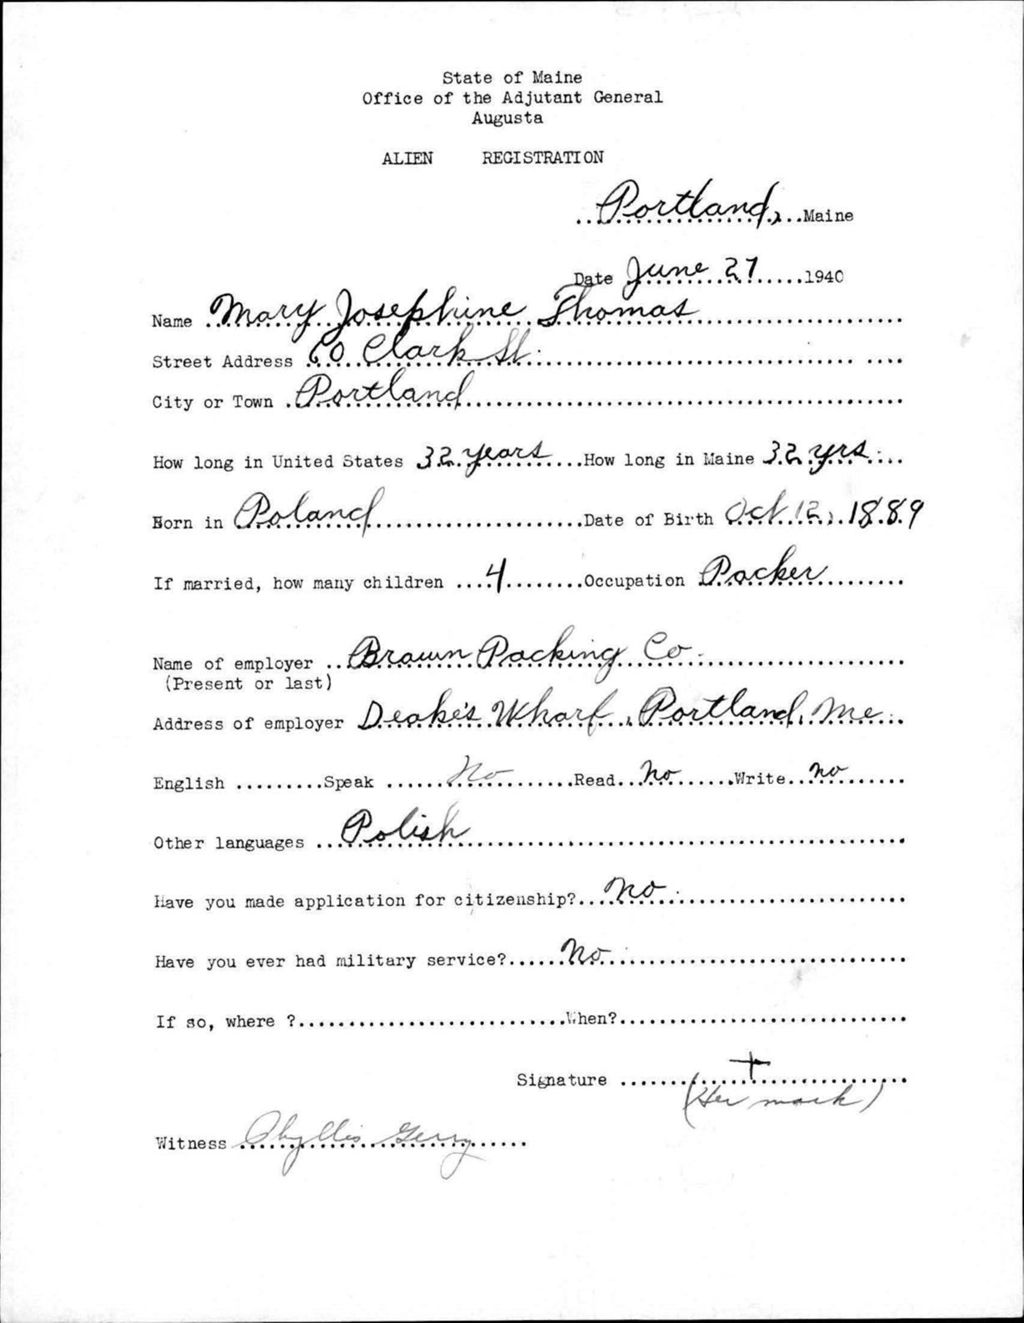 State of Maine
Office of the Adjutant General
Augusta
ALIEN REGISTRATION
Portland, Maine
Date June 27 1940
Name Mary Josephine Thomas
Street Address 60 Clark St.
City or Town Portland
How long in United States 32 years How long in Maine 32 yrs.
Born in Poland Date of Birth Oct. 12, 1889
If married, how many children 4 Occupation Packer
Name of employer Brawn Packing Co.
(Present or last)
Address of employer Deake's Wharf, Portland, Me.
English Speak No Read No Write no
Other languages Polish
Have you made application for citizenship? No.
Have you ever had military service? No.
If so, where ? When?
Signature +
(Her mark)
Witness Phyllis Gerry